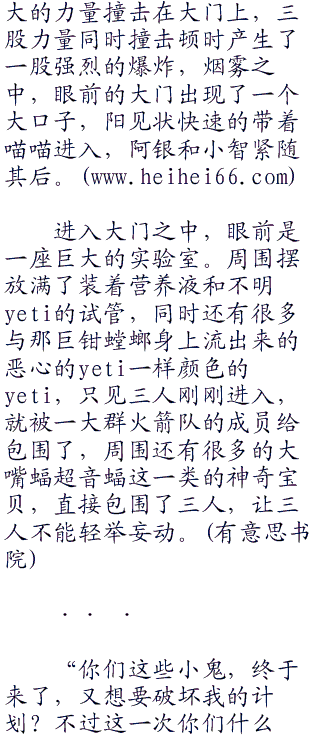 大的力量撞击在大门上，三
股力量同时撞击顿时产生了
一股强烈的爆炸，烟雾之
中，眼前的大门出现了一个
大口子，阳见状快速的带着
喵喵进入，阿银和小智紧随
其后。(www.heihei66.com)
进入大门之中，眼前是
一座巨大的实验室。周围摆
放满了装着营养液和不明
yeti的试管，同时还有很多
与那巨钳螳螂身上流出来的
恶心的yeti一样颜色的
yeti，只见三人刚刚进入，
就被一大群火箭队的成员给
包围了，周围还有很多的大
嘴蝠超音蝠这一类的神奇宝
贝，直接包围了三人，让三
人不能轻举妄动。(有意思书
院)
. . .
“你们这些小鬼，终于
来了，又想要破坏我的计
划？不过这一次你们什么